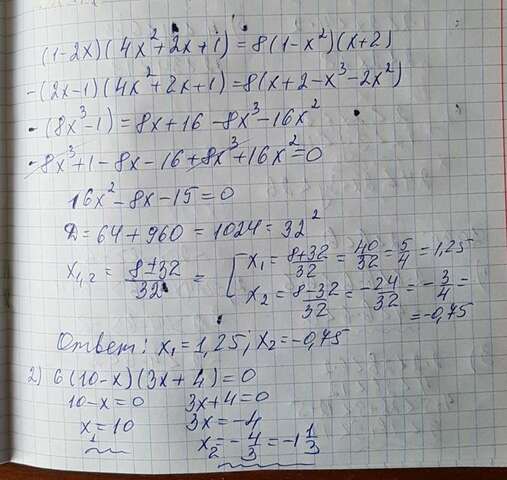 (1-2x)(4x²+2x+1)=8(1-x²)(x+2)
-(2x-1)(4x²+2x+1)=8(x+2-x³-2x²)
-(8x³-1)=8x+16-8x³-16x²
-8x³+1-8x-16+8x³+16x²=0
16x²-8x-15=0
D=64+960=1024=32²
x₁,₂=(8±32)/32= [ x₁=(8+32)/32=40/32=5/4=1,25
x₂=(8-32)/32=-24/32=-3/4=
=-0,75
Ответ: x₁=1,25; x₂=-0,75
2) 6(10-x)(3x+4)=0
10-x=0 3x+4=0
x₁=10 3x=-4
x₂=-4/3=-1 1/3